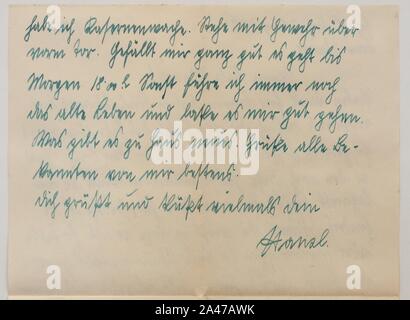 habe ich Kasernenwache. Stehe mit Gewehr über
vorm Tor. Gefällt mir ganz gut es geht bis
Morgen 18 Sonst führe ich immer noch
das alte Leben und laße es mir gut gehen.
Was gibt es zu Haus neues. Grüße alle Be-
kannten von mir bestens.
Dich grüßt und küßt vielmals dein
alamy
2A47AWK